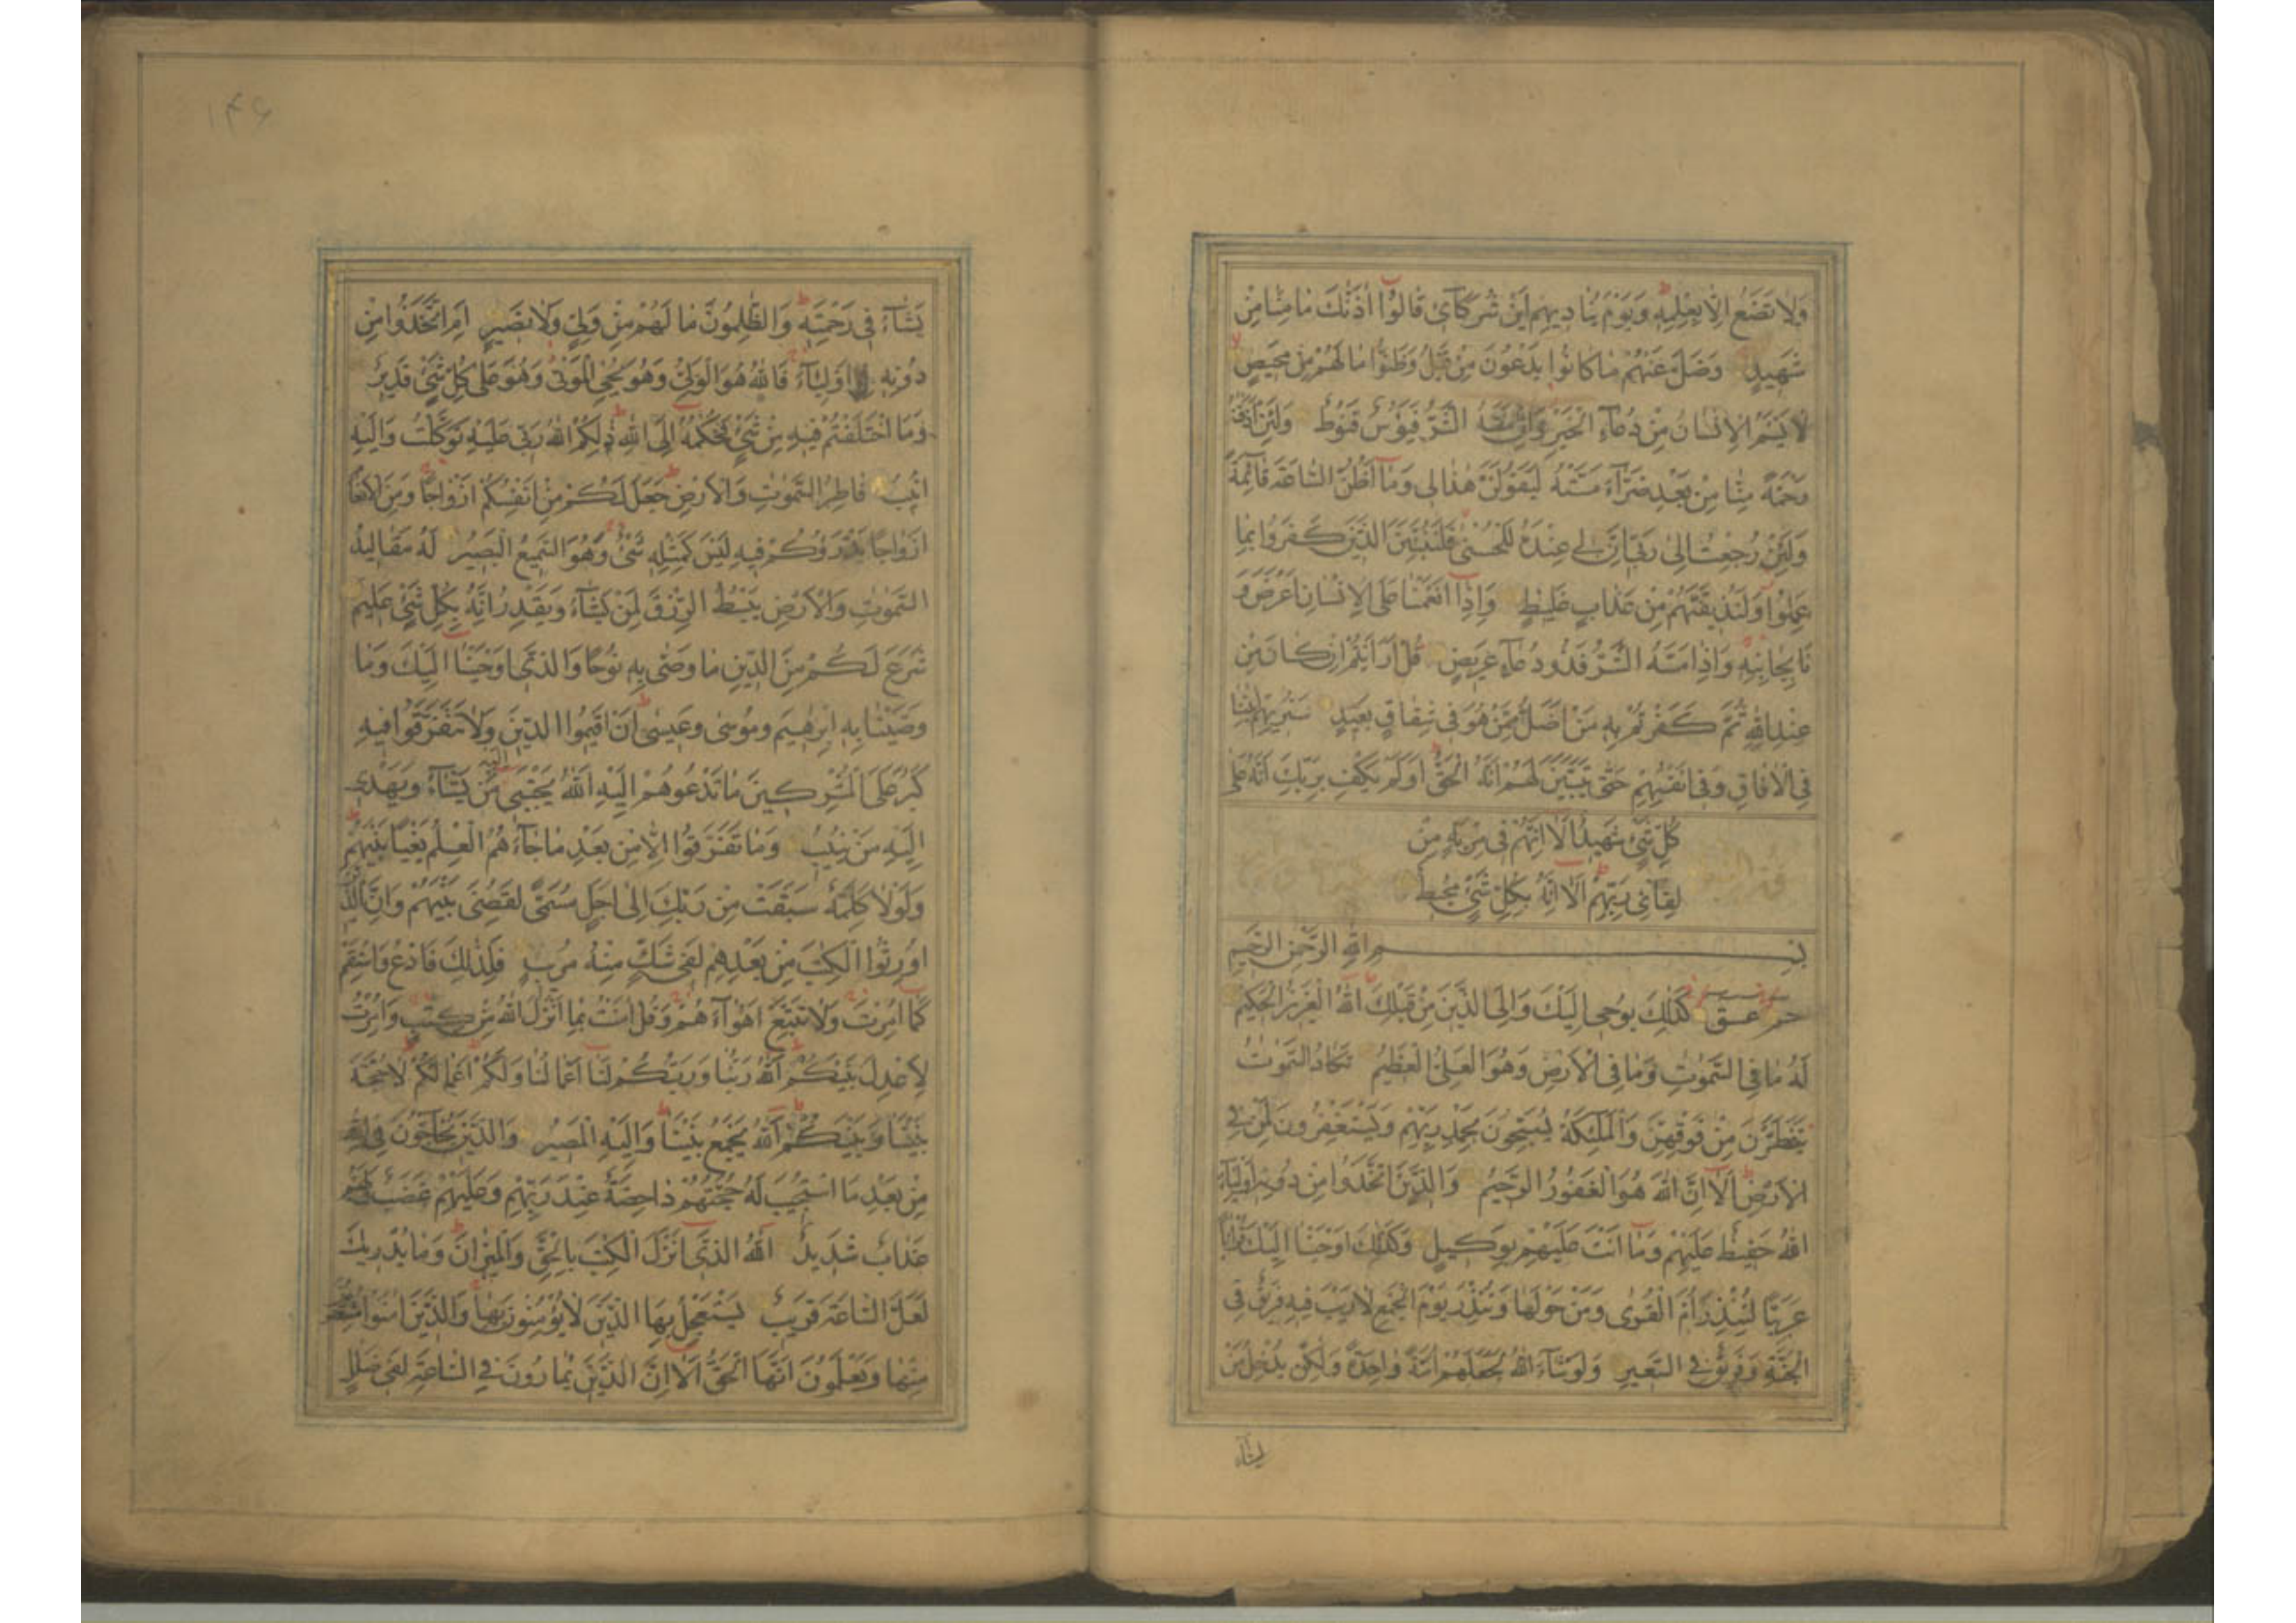 وَلَا تَضَعُ اِلَّا بِعِلْمِهٖ وَيَوْمَ يُنَادِيهِمْ اَيْنَ شُرَكَآئِ قَالُوْا اٰذَنّٰكَ مَا مِنَّا مِنْ
شَهِيدٍ وَضَلَّ عَنْهُمْ مَا كَانُوا يَدْعُونَ مِنْ قَبْلُ وَظَنُّوا مَا لَهُمْ مِنْ مَحِيصٍ
لَا يَسْئَمُ الْاِنْسَانُ مِنْ دُعَآءِ الْخَيْرِ وَاِنْ مَسَّهُ الشَّرُّ فَيَؤُسٌ قَنُوطٌ وَلَئِنْ اَذَقْنٰهُ
رَحْمَةً مِنَّا مِنْ بَعْدِ ضَرَّآءَ مَسَّتْهُ لَيَقُولَنَّ هٰذَا لِى وَمَآ اَظُنُّ السَّاعَةَ قَآئِمَةً
وَلَئِنْ رُجِعْتُ اِلٰى رَبِّى اِنَّ لِى عِنْدَهُ لَلْحُسْنٰى فَلَنُنَبِّئَنَّ الَّذِينَ كَفَرُوا بِمَا
عَمِلُوا وَلَنُذِيقَنَّهُمْ مِنْ عَذَابٍ غَلِيظٍ وَاِذَآ اَنْعَمْنَا عَلَى الْاِنْسَانِ اَعْرَضَ وَ
نَاٰ بِجَانِبِهٖ وَاِذَا مَسَّهُ الشَّرُّ فَذُو دُعَآءٍ عَرِيضٍ قُلْ اَرَاَيْتُمْ اِنْ كَانَ مِنْ
عِنْدِ اللّٰهِ ثُمَّ كَفَرْتُمْ بِهٖ مَنْ اَضَلُّ مِمَّنْ هُوَ فِى شِقَاقٍ بَعِيدٍ سَنُرِيهِمْ اٰيٰتِنَا
فِى الْاٰفَاقِ وَفِى اَنْفُسِهِمْ حَتّٰى يَتَبَيَّنَ لَهُمْ اَنَّهُ الْحَقُّ اَوَلَمْ يَكْفِ بِرَبِّكَ اَنَّهُ عَلٰى
كُلِّ شَىْءٍ شَهِيدٌ اَلَآ اِنَّهُمْ فِى مِرْيَةٍ مِنْ
لِقَآئِ رَبِّهِمْ اَلَآ اِنَّهُ بِكُلِّ شَىْءٍ مُحِيطٌ
بِسْمِ اللّٰهِ الرَّحْمٰنِ الرَّحِيمِ
حٰم عٓسٓقٓ كَذٰلِكَ يُوحِى اِلَيْكَ وَاِلَى الَّذِينَ مِنْ قَبْلِكَ اللّٰهُ الْعَزِيزُ الْحَكِيمُ
لَهُ مَا فِى السَّمٰوٰتِ وَمَا فِى الْاَرْضِ وَهُوَ الْعَلِىُّ الْعَظِيمُ تَكَادُ السَّمٰوٰتُ
يَتَفَطَّرْنَ مِنْ فَوْقِهِنَّ وَالْمَلٰٓئِكَةُ يُسَبِّحُونَ بِحَمْدِ رَبِّهِمْ وَيَسْتَغْفِرُونَ لِمَنْ فِى
الْاَرْضِ اَلَآ اِنَّ اللّٰهَ هُوَ الْغَفُورُ الرَّحِيمُ وَالَّذِينَ اتَّخَذُوا مِنْ دُونِهٖ اَوْلِيَآءَ
اللّٰهُ حَفِيظٌ عَلَيْهِمْ وَمَآ اَنْتَ عَلَيْهِمْ بِوَكِيلٍ وَكَذٰلِكَ اَوْحَيْنَا اِلَيْكَ قُرْاٰنًا
عَرَبِيًّا لِتُنْذِرَ اُمَّ الْقُرٰى وَمَنْ حَوْلَهَا وَتُنْذِرَ يَوْمَ الْجَمْعِ لَا رَيْبَ فِيهِ فَرِيقٌ فِى
الْجَنَّةِ وَفَرِيقٌ فِى السَّعِيرِ وَلَوْ شَآءَ اللّٰهُ لَجَعَلَهُمْ اُمَّةً وَاحِدَةً وَلٰكِنْ يُدْخِلُ مَنْ
يَشَآءُ
١٤٦
يَشَآءُ فِى رَحْمَتِهٖ وَالظّٰلِمُونَ مَا لَهُمْ مِنْ وَلِىٍّ وَلَا نَصِيرٍ اَمِ اتَّخَذُوا مِنْ
دُونِهٖ اَوْلِيَآءَ فَاللّٰهُ هُوَ الْوَلِىُّ وَهُوَ يُحْىِ الْمَوْتٰى وَهُوَ عَلٰى كُلِّ شَىْءٍ قَدِيرٌ
وَمَا اخْتَلَفْتُمْ فِيهِ مِنْ شَىْءٍ فَحُكْمُهُ اِلَى اللّٰهِ ذٰلِكُمُ اللّٰهُ رَبِّى عَلَيْهِ تَوَكَّلْتُ وَاِلَيْهِ
اُنِيبُ فَاطِرُ السَّمٰوٰتِ وَالْاَرْضِ جَعَلَ لَكُمْ مِنْ اَنْفُسِكُمْ اَزْوَاجًا وَمِنَ الْاَنْعَامِ
اَزْوَاجًا يَذْرَؤُكُمْ فِيهِ لَيْسَ كَمِثْلِهٖ شَىْءٌ وَهُوَ السَّمِيعُ الْبَصِيرُ لَهُ مَقَالِيدُ
السَّمٰوٰتِ وَالْاَرْضِ يَبْسُطُ الرِّزْقَ لِمَنْ يَشَآءُ وَيَقْدِرُ اِنَّهُ بِكُلِّ شَىْءٍ عَلِيمٌ
شَرَعَ لَكُمْ مِنَ الدِّينِ مَا وَصّٰى بِهٖ نُوحًا وَالَّذِى اَوْحَيْنَا اِلَيْكَ وَمَا
وَصَّيْنَا بِهٖ اِبْرٰهِيمَ وَمُوسٰى وَعِيسٰى اَنْ اَقِيمُوا الدِّينَ وَلَا تَتَفَرَّقُوا فِيهِ
كَبُرَ عَلَى الْمُشْرِكِينَ مَا تَدْعُوهُمْ اِلَيْهِ اَللّٰهُ يَجْتَبِى اِلَيْهِ مَنْ يَشَآءُ وَيَهْدِى
اِلَيْهِ مَنْ يُنِيبُ وَمَا تَفَرَّقُوا اِلَّا مِنْ بَعْدِ مَا جَآءَهُمُ الْعِلْمُ بَغْيًا بَيْنَهُمْ
وَلَوْلَا كَلِمَةٌ سَبَقَتْ مِنْ رَبِّكَ اِلٰى اَجَلٍ مُسَمًّى لَقُضِىَ بَيْنَهُمْ وَاِنَّ الَّذِينَ
اُورِثُوا الْكِتٰبَ مِنْ بَعْدِهِمْ لَفِى شَكٍّ مِنْهُ مُرِيبٍ فَلِذٰلِكَ فَادْعُ وَاسْتَقِمْ
كَمَا اُمِرْتَ وَلَا تَتَّبِعْ اَهْوَآءَهُمْ وَقُلْ اٰمَنْتُ بِمَا اَنْزَلَ اللّٰهُ مِنْ كِتٰبٍ وَاُمِرْتُ
لِاَعْدِلَ بَيْنَكُمُ اللّٰهُ رَبُّنَا وَرَبُّكُمْ لَنَا اَعْمَالُنَا وَلَكُمْ اَعْمَالُكُمْ لَا حُجَّةَ
بَيْنَنَا وَبَيْنَكُمُ اَللّٰهُ يَجْمَعُ بَيْنَنَا وَاِلَيْهِ الْمَصِيرُ وَالَّذِينَ يُحَآجُّونَ فِى اللّٰهِ
مِنْ بَعْدِ مَا اسْتُجِيبَ لَهُ حُجَّتُهُمْ دَاحِضَةٌ عِنْدَ رَبِّهِمْ وَعَلَيْهِمْ غَضَبٌ وَلَهُمْ
عَذَابٌ شَدِيدٌ اَللّٰهُ الَّذِى اَنْزَلَ الْكِتٰبَ بِالْحَقِّ وَالْمِيزَانَ وَمَا يُدْرِيكَ
لَعَلَّ السَّاعَةَ قَرِيبٌ يَسْتَعْجِلُ بِهَا الَّذِينَ لَا يُؤْمِنُونَ بِهَا وَالَّذِينَ اٰمَنُوا مُشْفِقُونَ
مِنْهَا وَيَعْلَمُونَ اَنَّهَا الْحَقُّ اَلَا اِنَّ الَّذِينَ يُمَارُونَ فِى السَّاعَةِ لَفِى ضَلٰلٍ